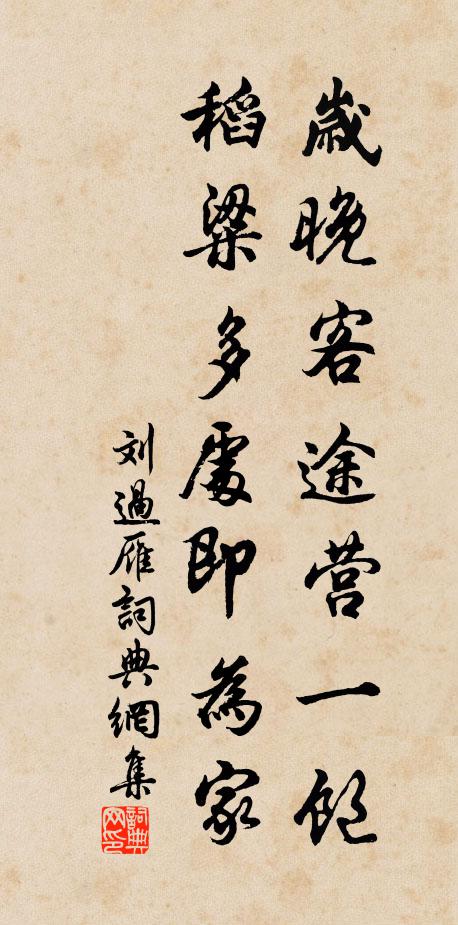 歲晚客途營一飽
稻粱多處即為家
刘過雁詞典網集
詞典網印